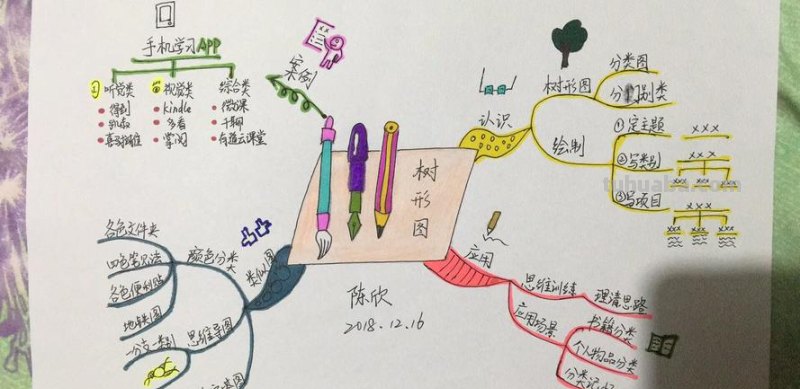 手机学习APP
听觉类
视觉类
综合类
得到
kindle
微课
多看
千聊
喜马拉雅
掌阅
有道云课堂
案例
树形图
陈欣
2018.12.16
认识
树形图
分类图
分门别类
绘制
①定主题
xxx
②写类别
xxx
③写项目
xxx
应用
思维训练
理清思路
应用场景
书籍分类
个人物品分类
类似图
颜色分类
各色文件夹
四色笔记法
各色便利贴
思维导图
地铁图
一分支一类别
tuhuabao.com